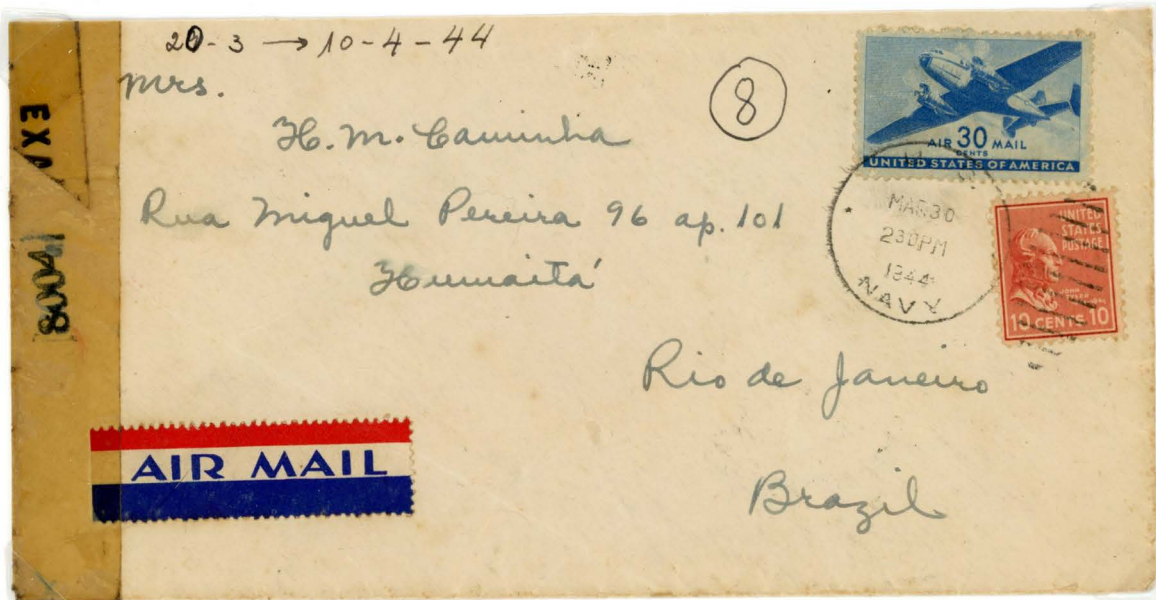 20-3 → 10-4-44
Mrs.
H. M. Caminha
Rua Miguel Pereira 96 ap. 101
Humaitá
Rio de Janeiro
Brazil
8
AIR 30 MAIL
CENTS
UNITED STATES OF AMERICA
MAR 30
230PM
1944
NAVY
UNITED
STATES
POSTAGE
JOHN
TYLER
10 CENTS 10
EXA
8004
AIR MAIL